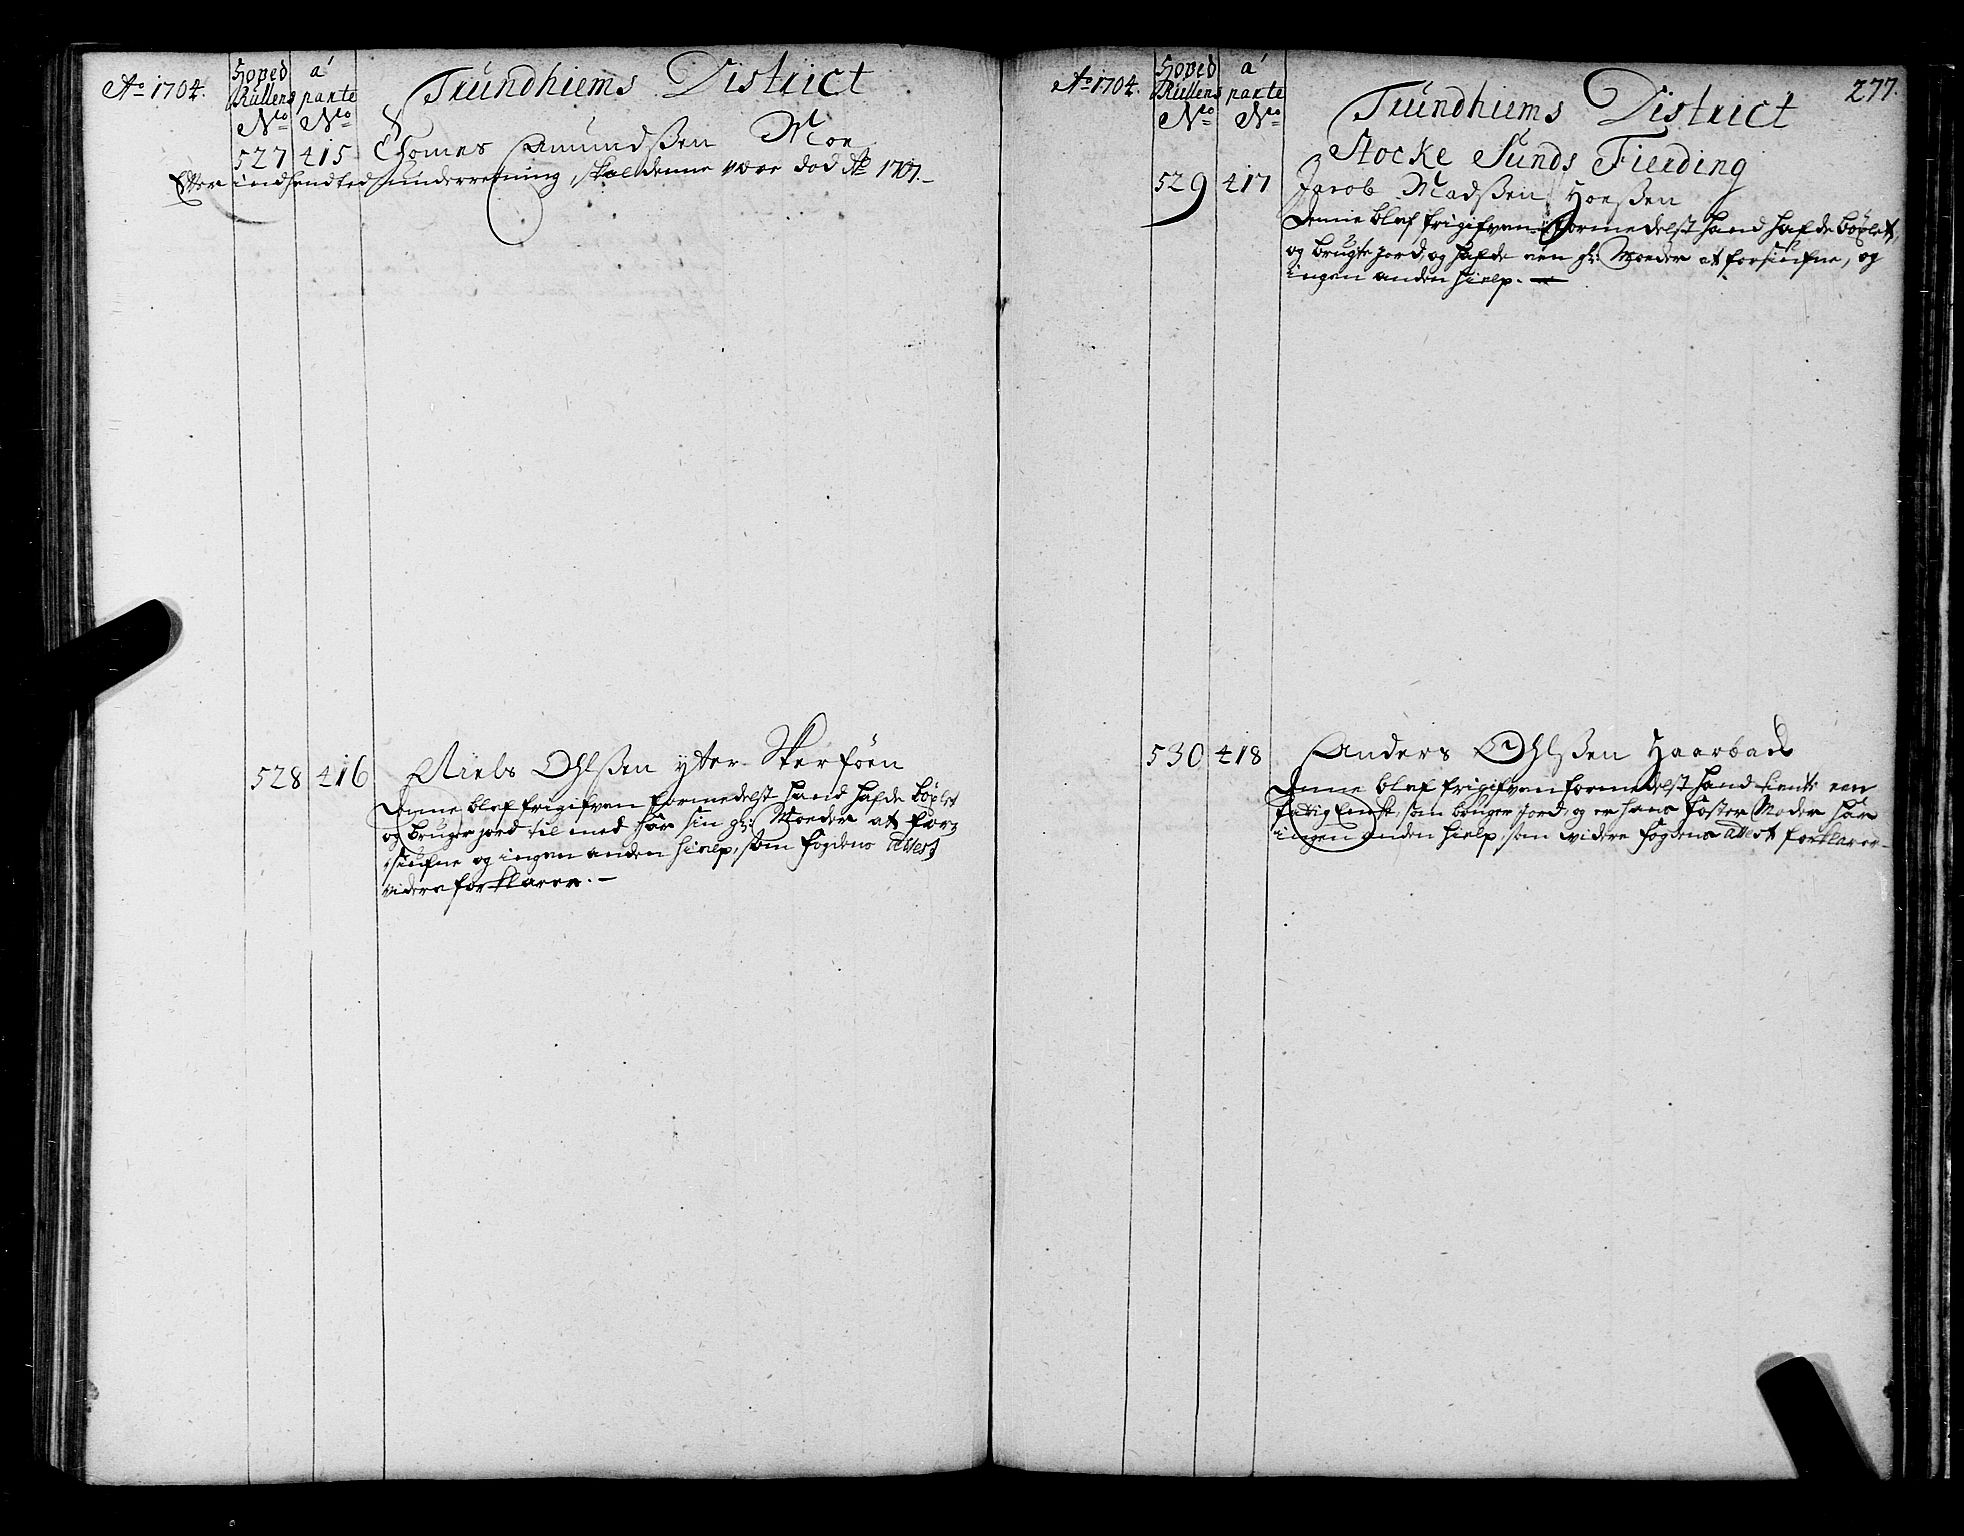 Ao 1704.
Hoved Rullens No
a' parte No
Trundhiems District
527 415 Thomes Amundßen Moe
Efter indhendted underretning, skal denne være död Ao 1707.
528 416 Niels Ohlßen ytter Skerföen
Denne blef frigifven formedelst hand hafde böxlet
og bruger jord til med har sin gl: Moeder at for=
siufne og ingen anden hielp, som fogdens attest
videre forklarer.
Ao 1704.
Hoved Rullens No
a' parte No
277.
Trundhiems District
Stocke Sunds Fierding
529 417 Jacob Madßen Hoeßen
Denne blef frigifven formedelst hand hafde böxlet,
og brugte jord, og hafde een gl: Moeder at forsiufne, og
ingen anden hielp.
530 418 Anders Ohlßen Haarbach
Denne blef frigifven formedelst hand tiente een
fattig Encke, som bruger jord, og er hans foster Moder har
ingen anden hielp, som videre fogdens attest forklarer